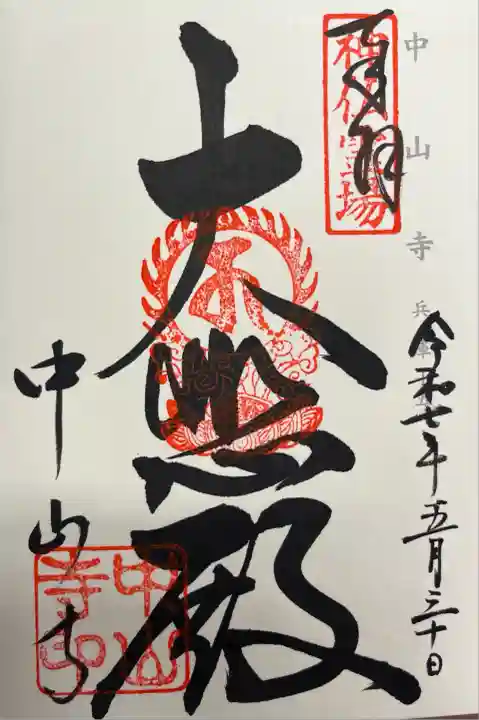 中山寺 兵庫
奉拝
神佛霊場
令和七年五月三十日
大悲殿
中山寺
中山寺印